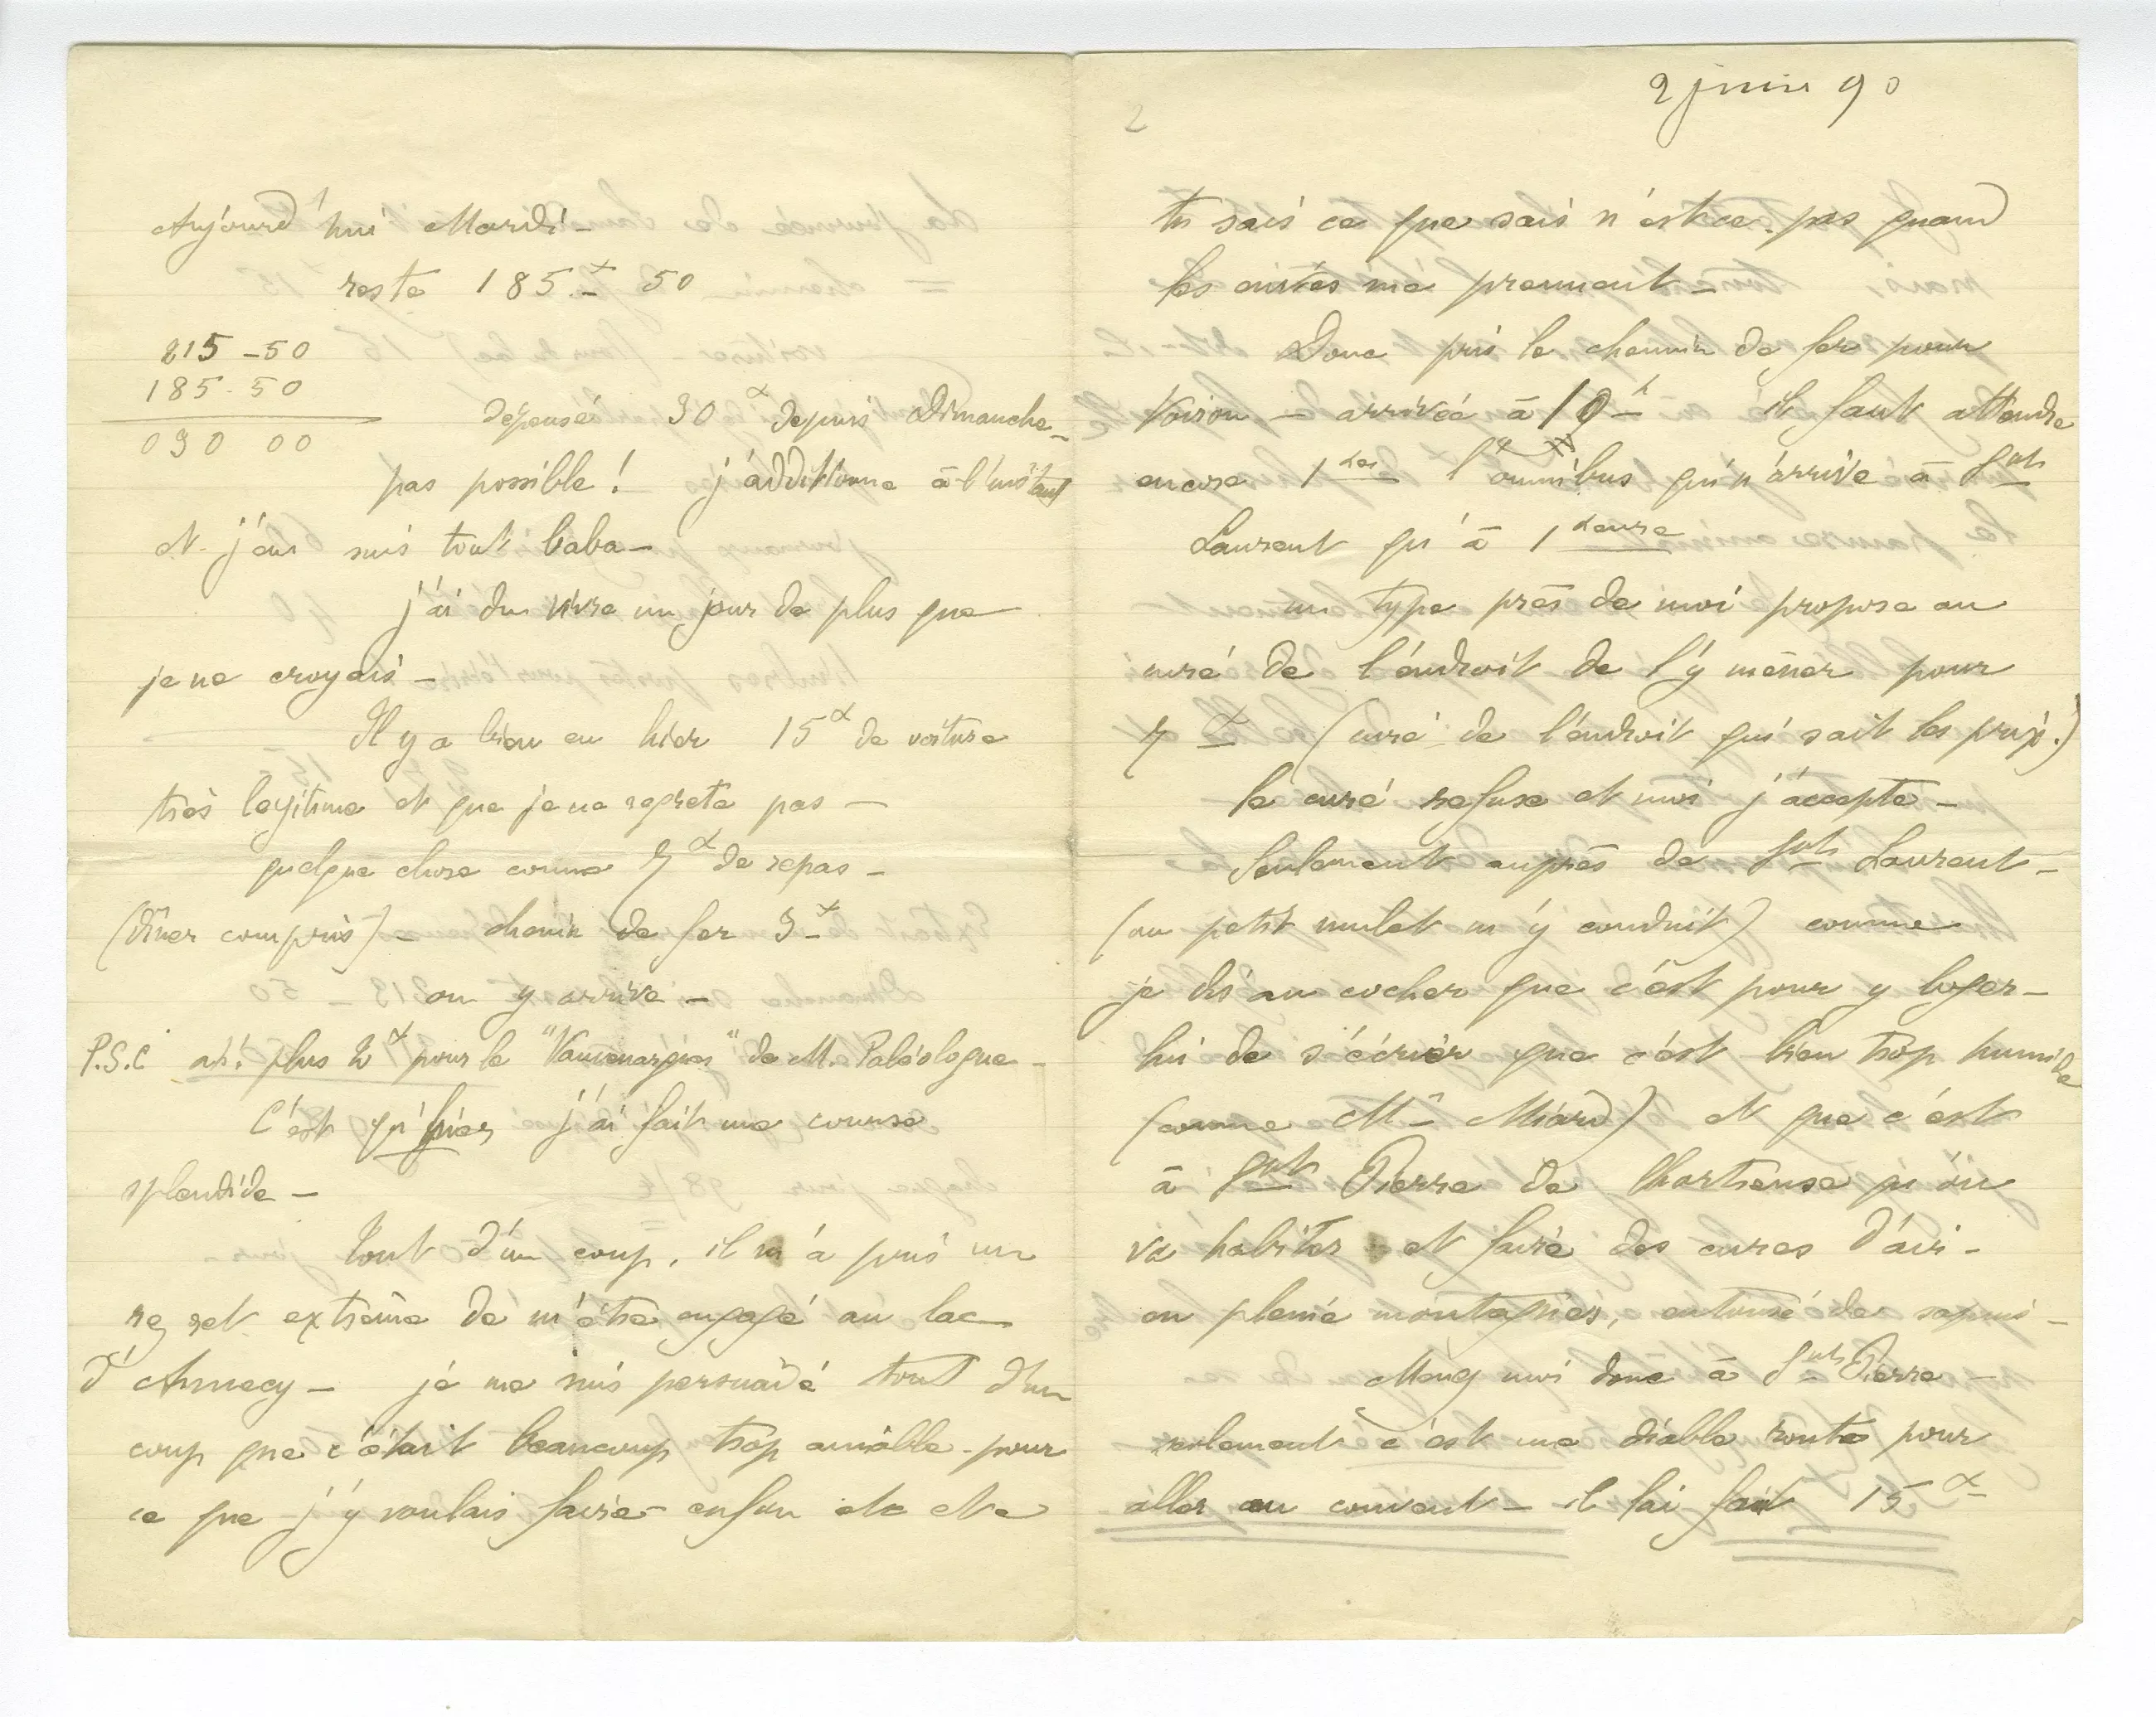 Aujourd'hui Mardi –
reste 185 f 50
215 – 50
185 – 50
030 00
dépensé 30 f depuis Dimanche –
pas possible ! j'additionne à l'instant
et j'en suis tout baba –
j'ai du vivre un jour de plus que
je ne croyais –
Il y a bien eu hier 15 f de voiture
très légitime et que je ne regrete pas –
quelque chose comme 7 f de repas –
(dîner compris) – chemin de fer 3 f
on y arrive –
P.S.C ah! plus 2 f pour le "Vauvenargues" de M. Paléologue –
C'est qu'hier j'ai fait une course
splendide –
Tout d'un coup, il m'a pris un
regret extrême de m'être engagé au lac
d'Annecy – je me suis persuadé tout d'un
coup que c'était beaucoup trop aimable pour
ce que j'y voulais faire – enfin etc etc
2 juin 90
2
tu sais ce que sais n'est ce pas quand
les envies me prennent –
Donc pris le chemin de fer pour
Voiron – arrivée à 10 h il faut attendre
encore 1 hre l'omnibus qui n'arrive à Snt
Laurent qu'à 1 heure
un type près de moi propose au
curé de l'endroit de l'y mener pour
7 f (curé de l'endroit qui sait les prix.)
le curé refuse et moi j'accepte –
Seulement auprès de Snt Laurent –
(un petit mulet m'y conduit) comme
je dis au cocher que c'est pour y loger –
lui de s'écrier que c'est bien trop humide
(comme Mr Miard) et que c'est
à Snt Pierre de Chartreuse qu'on
va habiter et faire des cures d'air –
en pleine montagnes, entouré de sapins –
Menez moi donc à Snt Pierre –
seulement c'est une diable route pour
aller au couvent – il fai fait 15 f